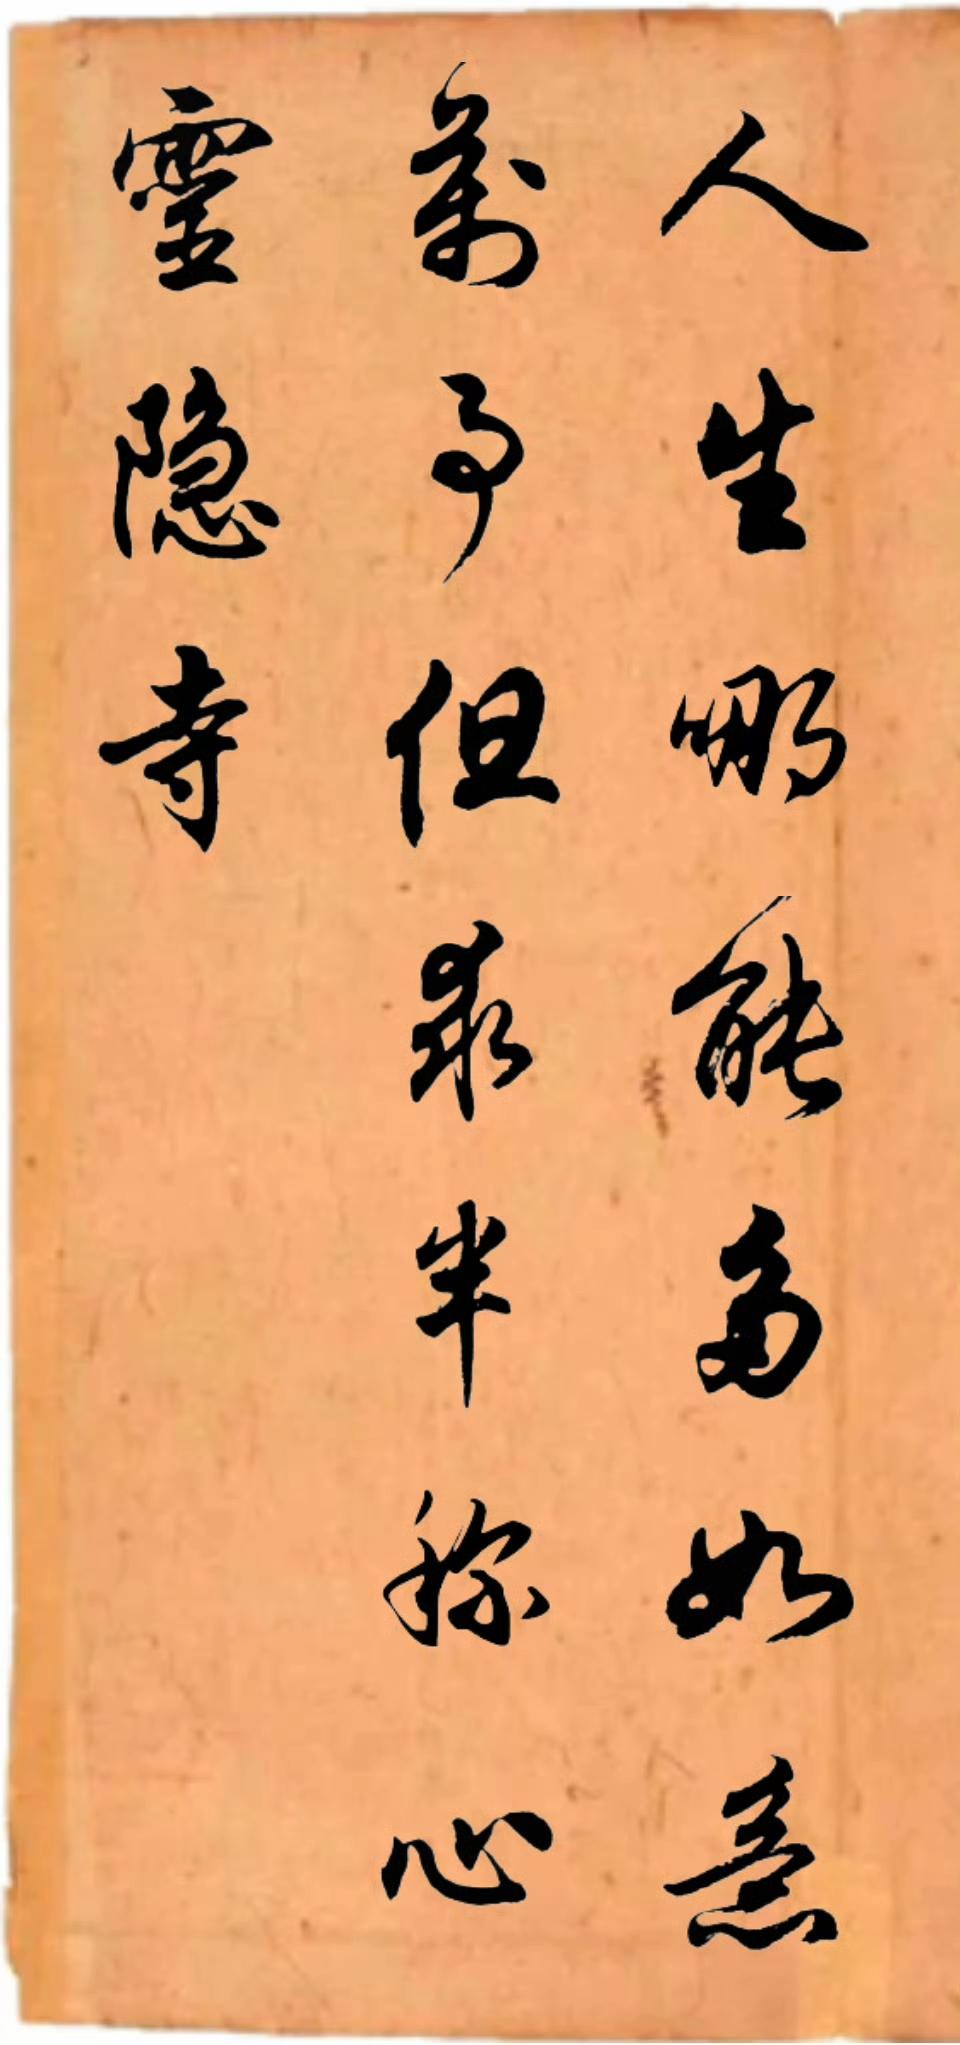 人生哪能多如意
萬事但求半称心
靈隐寺